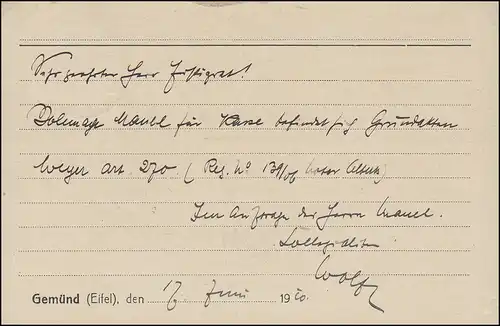 Sehr geehrter Herr Justizrat!
Vollmacht Manel für Kasse befindet sich Grundakten
Weyer Art. 270. (Reg. No 139/06
Im Auftrage des Herrn Manel.
Wolf
Gemünd (Eifel), den 17. Juni 1920.